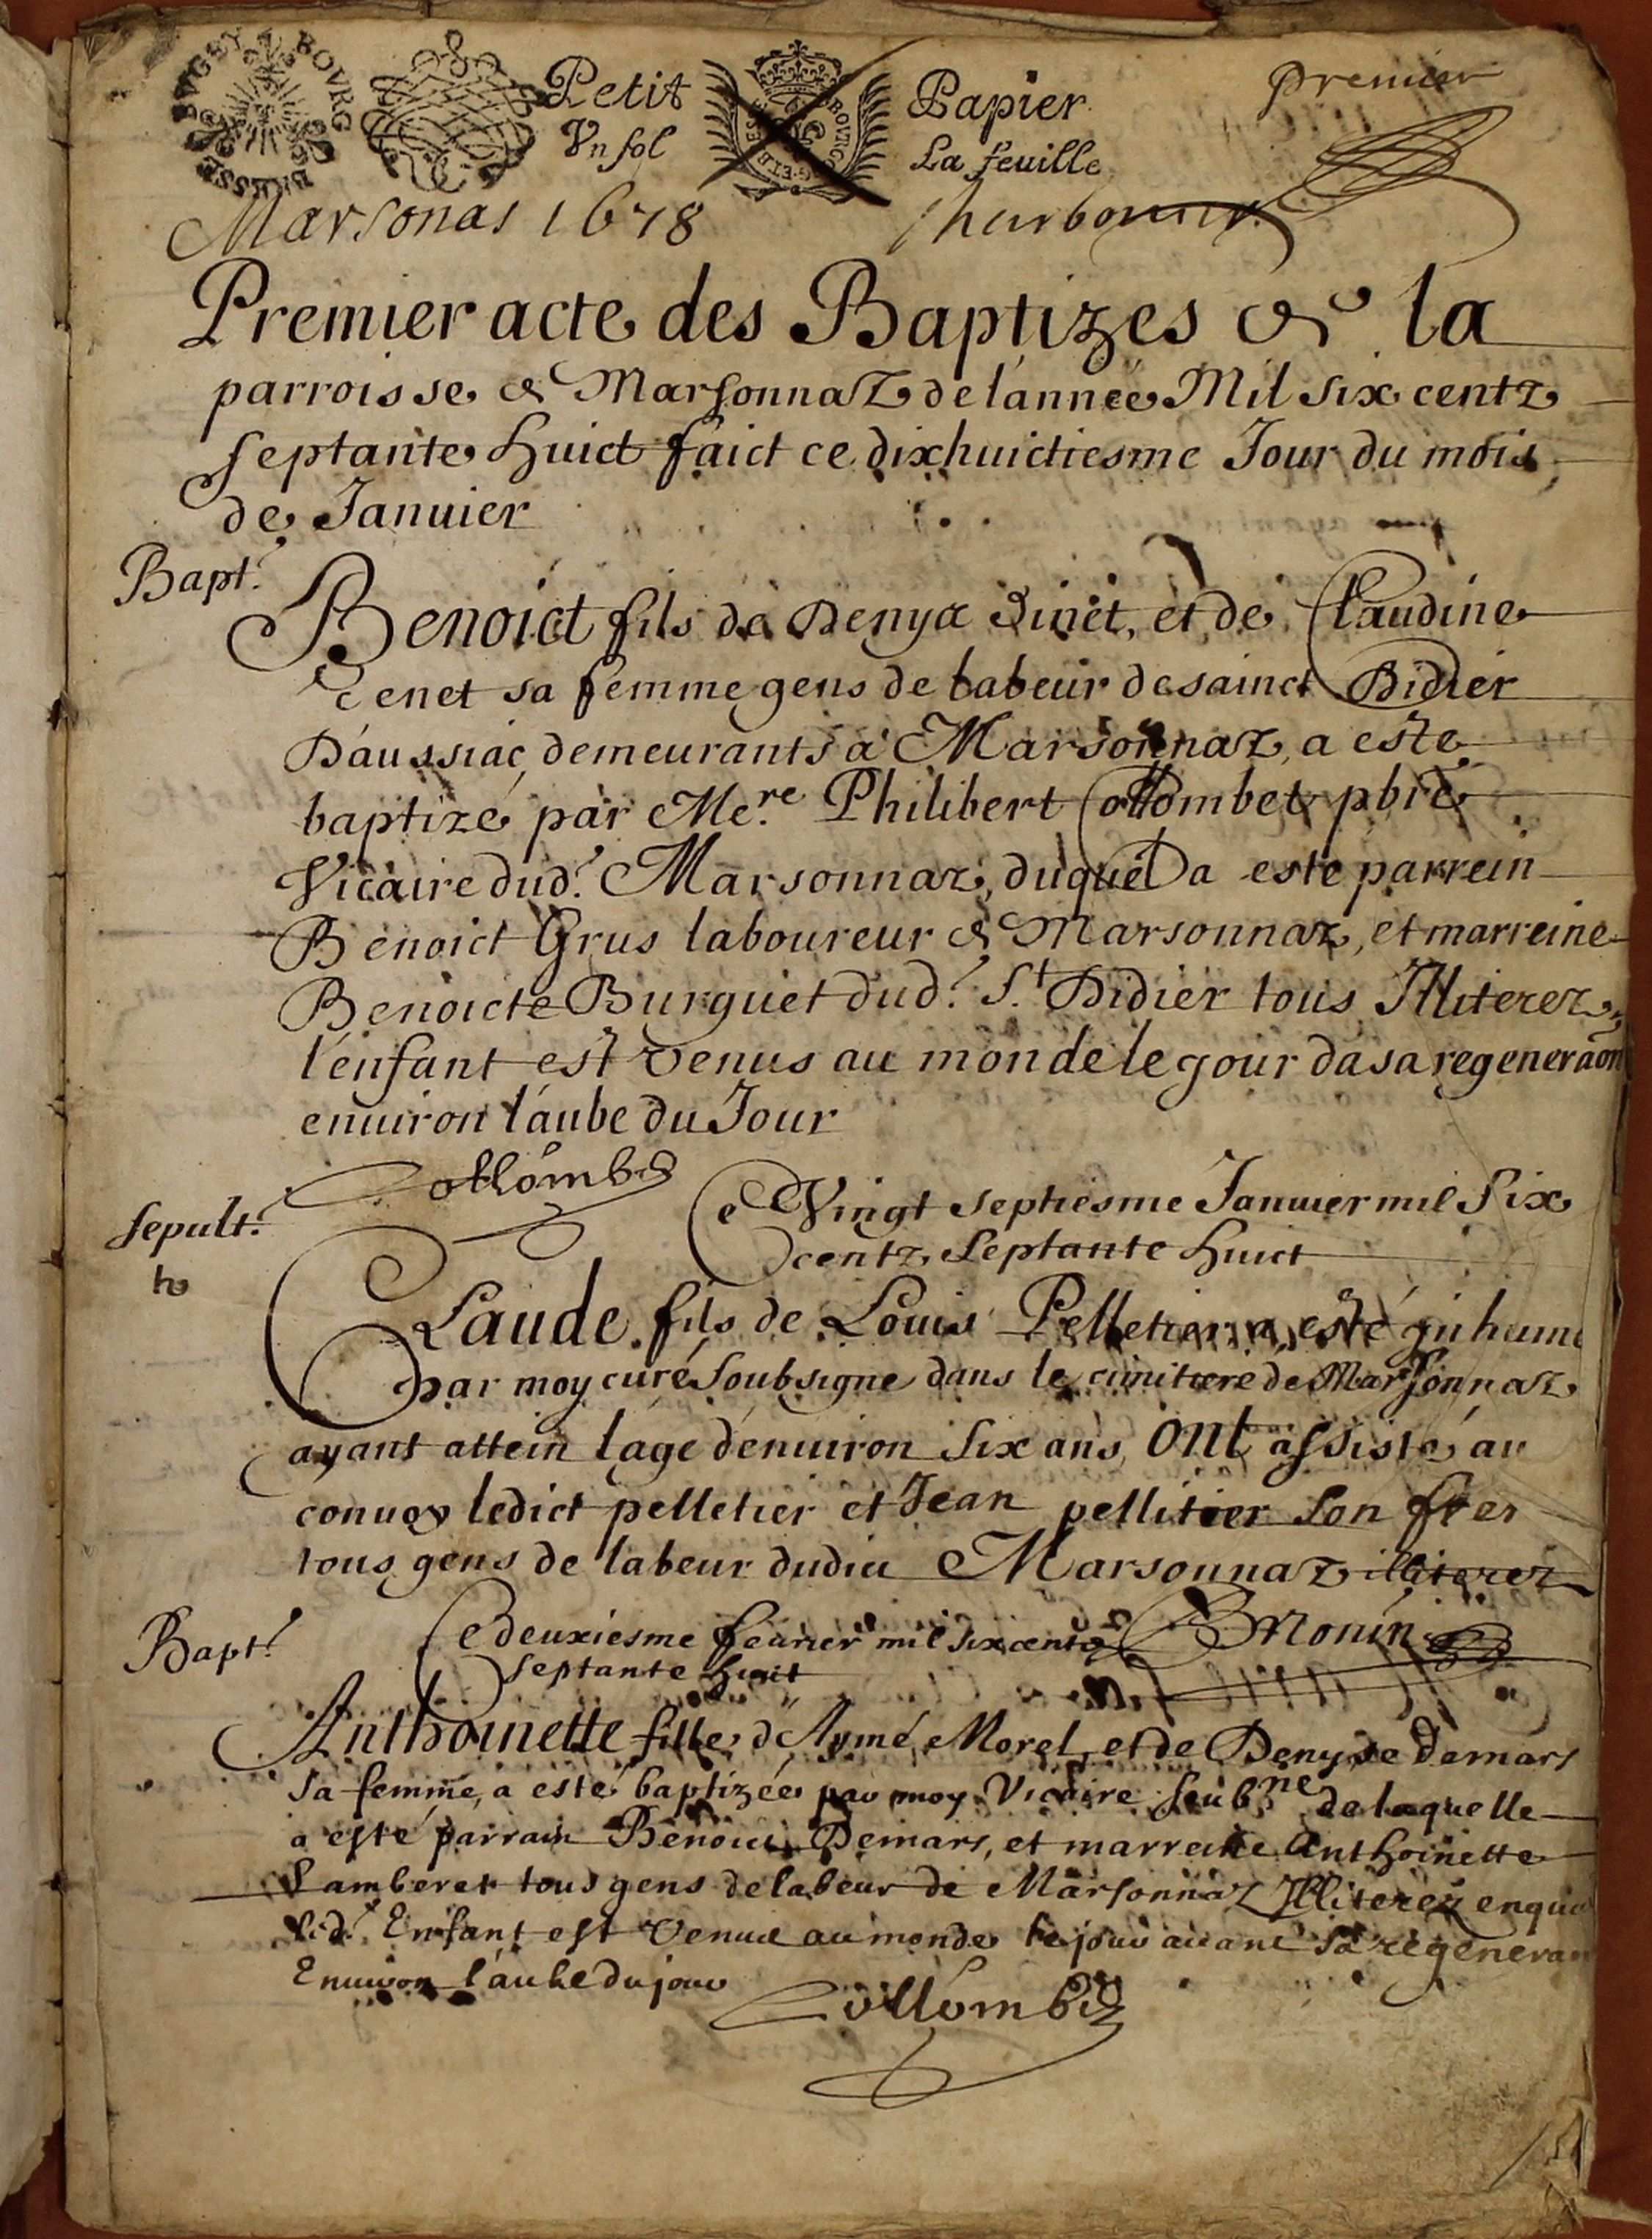 BVGEY BOVRG BRESSE
Petit Papier premier
Vn sol La feuille
Marsonas 1678 Charbonnier
Premier acte des Baptizes de la
parroisse de Marsonnaz de l'année Mil six centz
septante huict faict ce dixhuictiesme Jour du mois
de Januier
Bapt.
Benoict fils de Denys et de Claudine
sa femme gens de labeur de sainct Didier
D'aussiac demeurants a Marsonnaz, a este
baptizé par Me.re Philibert Collombet pbre
Vicaire dud. Marsonnaz, duquel a este parrein
Benoict Grus laboureur de Marsonnaz, et marreine
Benoicte Burguet dud. S.t Didier tous Illiterez,
l'enfant est venus au monde le jour da sa regeneraon
enuiron l'aube du Jour
Collombet
Sepult.
Ce Vingt septiesme Januier mil Six
centz Septante huict
Claude fils de Louis Pelletier a esté inhumé
par moy curé Soubsigne dans le cimitiere de Marsonnaz
ayant attein l'age d'enuiron Six ans, ont assisté au
conuoy ledict pelletier et Jean pellitier son frer
tous gens de labeur dudict Marsonnaz illiterez
Bapt.
Ce deuxiesme feurier mil six centz Monin
septante huit
Anthoinette fille d'Aymé Morel et de Denyse Demars
sa femme, a esté baptizée par moy Vicaire soub.ne de laquelle
a esté parrain Benoict Demars, et marreine Anthoinette
Lamberet tous gens de labeur de Marsonnaz Illiterez
led. Enfant est venue au monde le jour auant sa regeneraon
Enuiron l'aube du jour
Collombet